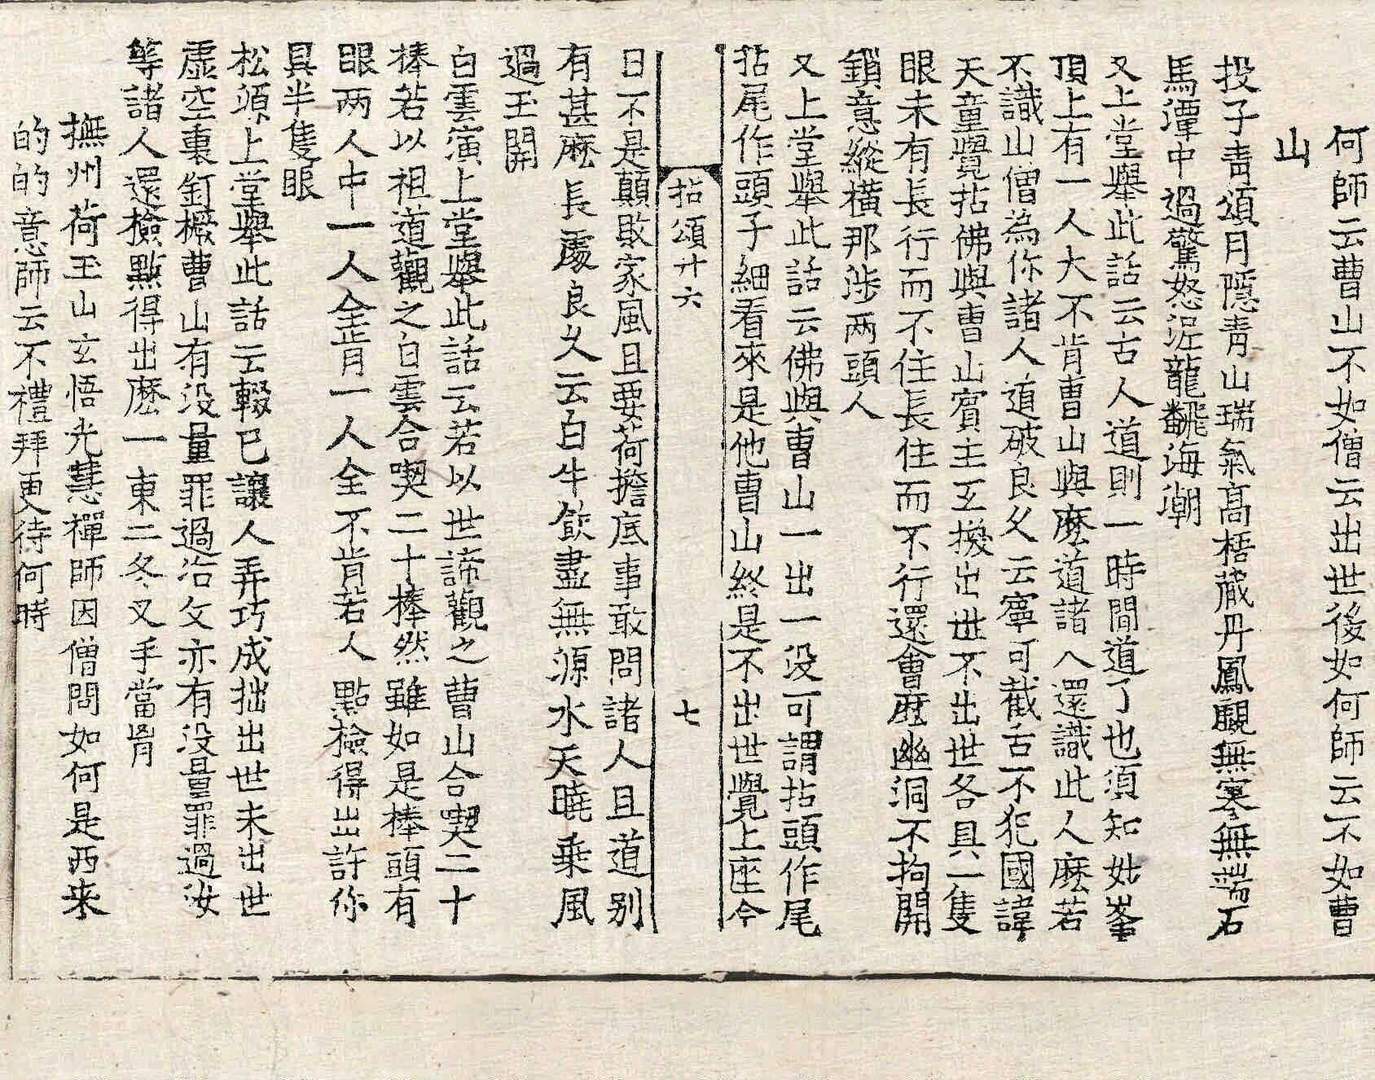 何師云曹山不如僧云出世後如何師云不如曹
山
投子靑頌月隱青山瑞氣高梧藏丹鳳覰無寥無端石
馬潭中過驚怒泥龍飜海潮
又上堂舉此話云古人道則一時間道了也須知妙峯
頂上有一人大不肯曹山與麽道諸人還識此人麽若
不識山僧為你諸人道破良久云寧可截舌不犯國諱
天童覺拈佛與曹山賓主互換出世不出世各具一隻
眼未有長行而不住長住而不行還會麽幽洞不拘關
鎖意縱橫那涉两頭人
又上堂舉此話云佛與曹山一出一没可謂拈頭作尾
拈尾作頭子細看來是他曹山終是不出世覺上座今
拈頌廿六 七
日不是顛敗家風且要荷擔底事敢問諸人且道别
有甚麽長處良久云白牛飲盡無源水天曉乘風
過玉關
白雲演上堂舉此話云若以世諦觀之曹山合喫二十
棒若以祖道觀之白雲合喫二十棒然雖如是棒頭有
眼两人中一人全肯一人全不肯若人點檢得出許你
具半隻眼
松源上堂舉此話云輟已讓人弄巧成拙出世未出世
虛空裏釘橛曹山有没量罪過冶父亦有没量罪過汝
等諸人還檢點得出麽一東二冬叉手當胷
撫州荷玉山玄悟光慧禪師因僧問如何是西来
的的意師云不禮拜更待何時